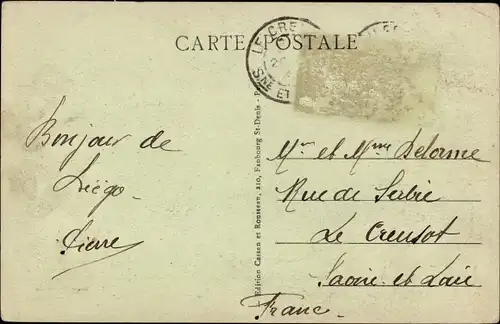 CARTE POSTALE
LE CRE
SNE ET
Bonjour de
Liégo
Pierre
Edition Cassen et Rousseau, 210, Faubourg St-Denis - P
Mr et Mme Delorme
Rue de Serbie
Le Creusot
Saone et Loire
Franc.